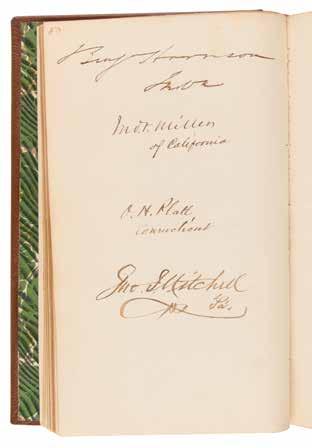 Benj Harrison
Inda
Jno. F. Miller
of California
O. H. Platt
Connecticut
Jno. I. Mitchell
Pa.